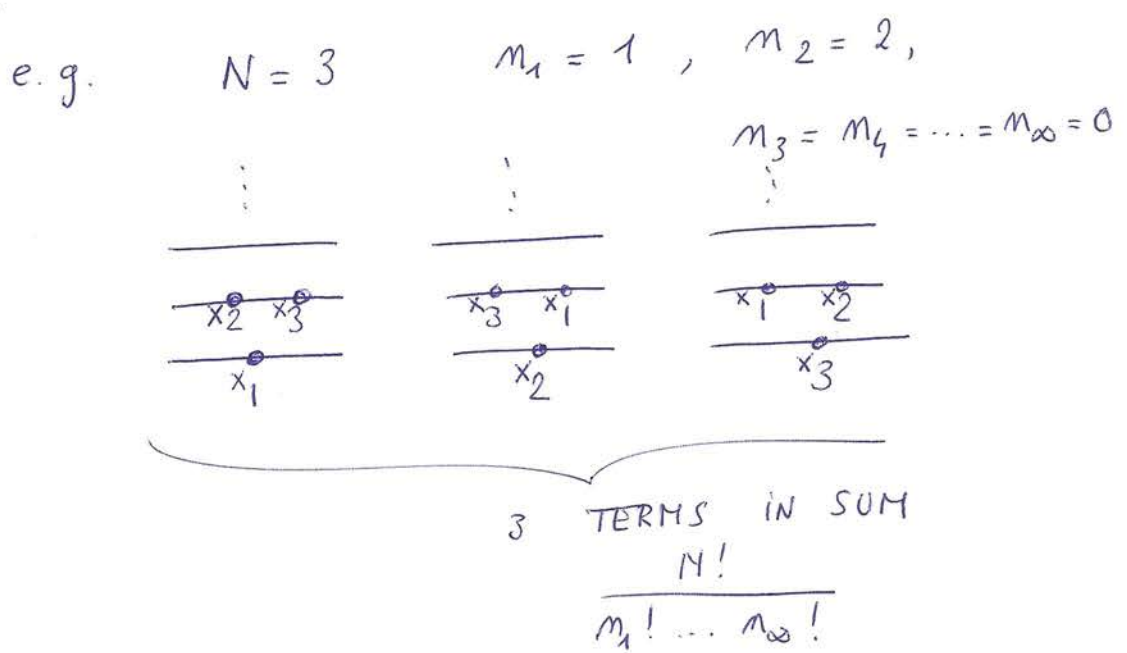 e.g. N = 3 n₁ = 1 , n₂ = 2,
n₃ = n₄ = ... = n∞ = 0
x₂ x₃ x₃ x₁ x₁ x₂
x₁ x₂ x₃
3 TERMS IN SUM
N!
n₁! ... n∞!